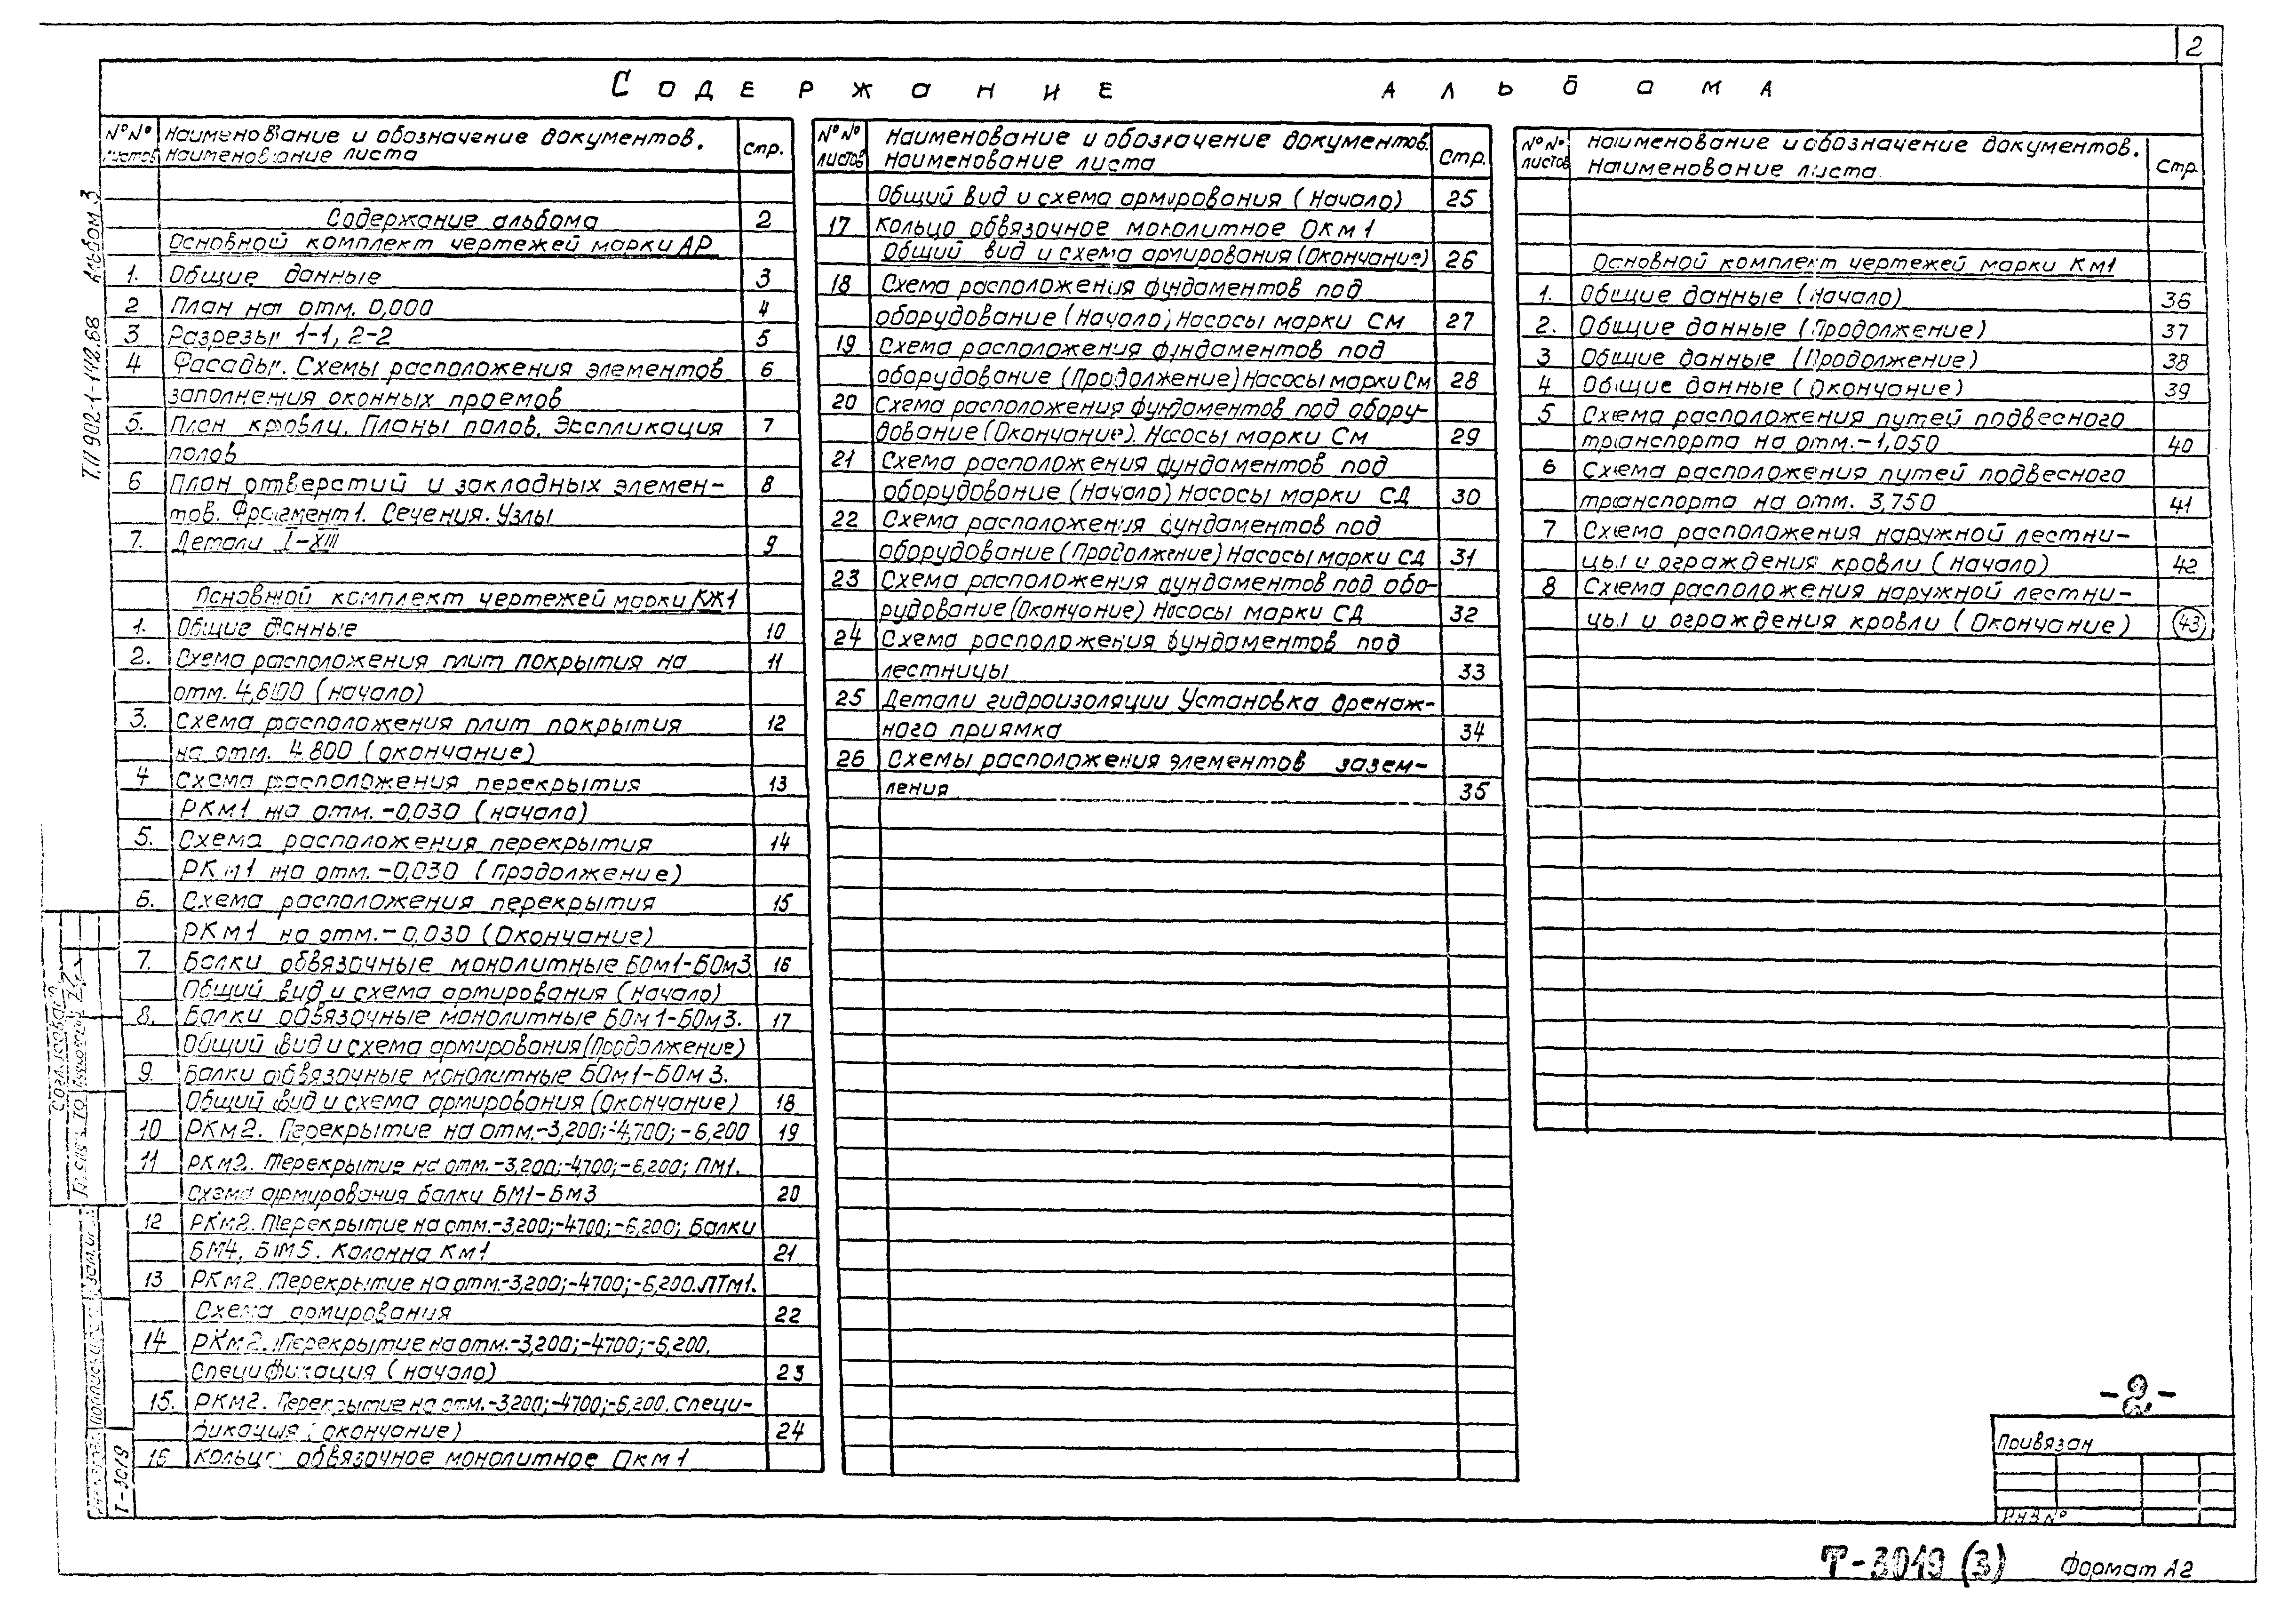 2
Содержание альбома
№№ листов
Наименование и обозначение документов.
Наименование листа
стр.
Содержание альбома 2
Основной комплект чертежей марки АР
1. Общие данные 3
2 План на отм. 0,000 4
3 Разрезы 1-1, 2-2 5
4 Фасады. Схемы расположения элементов 6
заполнения оконных проемов
5. План кровли. Планы полов. Экспликация 7
полов
6 План отверстий и закладных элемен- 8
тов. Фрагмент 1. Сечения. Узлы
7. Детали I-XIII 9
Основной комплект чертежей марки КЖ1
1. Общие данные 10
2. Схема расположения плит покрытия на 11
отм. 4,800 (начало)
3. Схема расположения плит покрытия 12
на отм. 4.800 (окончание)
4 Схема расположения перекрытия 13
РКм1 на отм. -0,030 (начало)
5. Схема расположения перекрытия 14
РКм1 на отм. -0,030 (Продолжение)
6. Схема расположения перекрытия 15
РКм1 на отм. -0,030 (Окончание)
7. Балки обвязочные монолитные БОм1-БОм3. 16
Общий вид и схема армирования (Начало)
8. Балки обвязочные монолитные БОм1-БОм3. 17
Общий вид и схема армирования (Продолжение)
9. Балки обвязочные монолитные БОм1-БОм3.
Общий вид и схема армирования (Окончание) 18
10 РКм2. Перекрытие на отм.-3,200; -4,700; -6,200 19
11 РКм2. Перекрытие на отм.-3,200;-4700;-6,200; ПМ1.
Схема армирования балки БМ1-БМ3 20
12 РКм2. Перекрытие на отм.-3,200;-4700;-6,200; Балки
БМ4, БМ5. Колонна Км1 21
13 РКм2. Перекрытие на отм.-3,200;-4700;-6,200. ЛТм1.
Схема армирования 22
14 РКм2. Перекрытие на отм.-3,200;-4700;-6,200.
Спецификация (начало) 23
15. РКм2. Перекрытие на отм.-3200;-4700;-6,200. Специ-
фикация (окончание) 24
16 Кольцо обвязочное монолитное Окм1
№№ листов
Наименование и обозначение документов.
Наименование листа
Стр.
Общий вид и схема армирования (Начало) 25
17 Кольцо обвязочное монолитное ОКм1
Общий вид и схема армирования (Окончание) 26
18 Схема расположения фундаментов под
оборудование (Начало) Насосы марки СМ 27
19 Схема расположения фундаментов под
оборудование (Продолжение) Насосы марки См 28
20 Схема расположения фундаментов под обору-
дование (Окончание). Насосы марки См 29
21 Схема расположения фундаментов под
оборудование (Начало) Насосы марки СД 30
22 Схема расположения фундаментов под
оборудование (Продолжение) Насосы марки СД 31
23 Схема расположения фундаментов под обо-
рудование (Окончание) Насосы марки СД 32
24 Схема расположения фундаментов под
лестницы 33
25 Детали гидроизоляции Установка дренаж-
ного приямка 34
26 Схемы расположения элементов зазем-
ления 35
№№ листов
Наименование и обозначение документов.
Наименование листа.
Стр
Основной комплект чертежей марки Км1
1. Общие данные (Начало) 36
2. Общие данные (Продолжение) 37
3 Общие данные (Продолжение) 38
4 Общие данные (Окончание) 39
5 Схема расположения путей подвесного
транспорта на отм. -1,050 40
6 Схема расположения путей подвесного
транспорта на отм. 3,750 41
7 Схема расположения наружной лестни-
цы и ограждения кровли (Начало) 42
8 Схема расположения наружной лестни-
цы и ограждения кровли (Окончание) 43
Т.П 902-1-142.88 Альбом 3
Согласовано
Т-3019
-2-
Привязан
Инв №
Т-3019 (3)
Формат А2